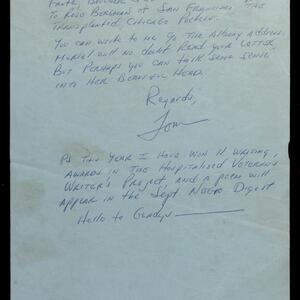 To Rose Bergman of San Francisco, "The
Transplanted Chicago Pocket".
You can write to me % The Albany address,
Muriel will no doubt read your letter,
But perhaps you can talk some sense
into her beautiful head.
Regards,
Tom
PS This year I have won 11 writing
awards in The Hospitalized Veteran's
Writer's Project, and a poem will
appear in the Sept Negro Digest
Hello to Gladys